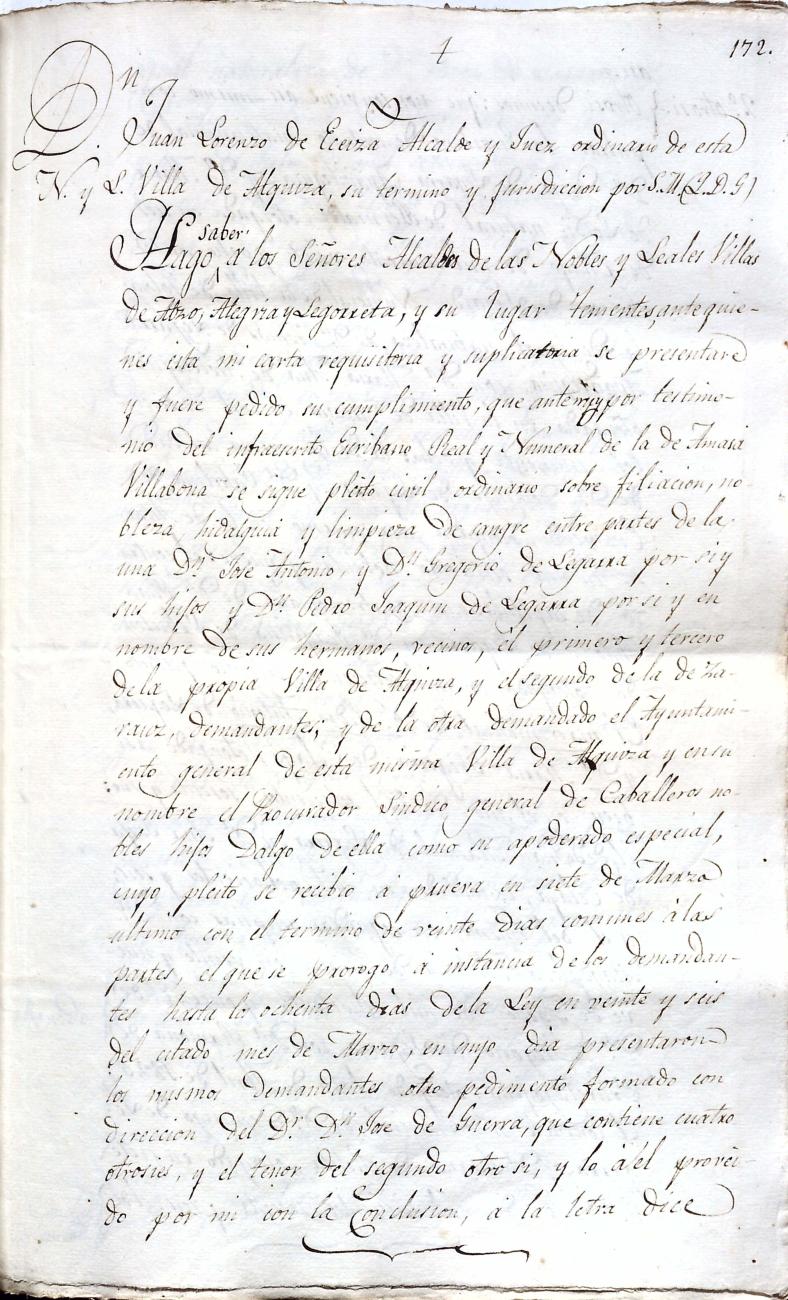 172.
Dn
Juan Lorenzo de Eceiza Alcalde y Juez ordinario de esta
N. y L. Villa de Alquiza, su termino y Jurisdiccion por S.M.(Q.D.G)
saber
Hago, a los Señores Alcaldes de las Nobles y Leales Villas
de Abzo, Alegria y Legorreta, y su lugar tenientes, ante quie-
nes esta mi carta requisitoria y suplicatoria se presentare
y fuere pedido su cumplimiento, que ante mi y por testimo-
nio del infraescrito Escribano Real y Numeral de la de Amasa
Villabona se sigue pleito civil ordinario sobre filiacion, no-
bleza, hidalguia y limpieza de sangre entre partes de la
una Dn. Jose Antonio, y Dn. Gregorio de Legarra por si y
sus hijos y Dn. Pedro Joaquin de Legarra por si y en
nombre de sus hermanos, vecinos, el primero y tercero
dela propia Villa de Alquiza, y el segundo de la de Za-
rauz, demandantes; y de la otra demandado el Ayuntami-
ento general de esta misma Villa de Alquiza y en su
nombre el Procurador Sindico general de Caballeros no-
bles hijos Dalgo de ella como su apoderado especial,
cuyo pleito se recibio á prueva en siete de Marzo
ultimo con el termino de veinte dias comunes á las
partes, el que se prorogo á instancia de los demandan-
tes hasta los ochenta dias dela Ley en veinte y seis
del citado mes de Marzo, en cuyo dia presentaron
los mismos demandantes otro pedimento formado con
direccion del Dr. Dn. Jose de Guerra, que contiene cuatro
otrosies, y el tenor del segundo otro si, y lo á él provei-
do por mi con la Conclusion, á la letra dice